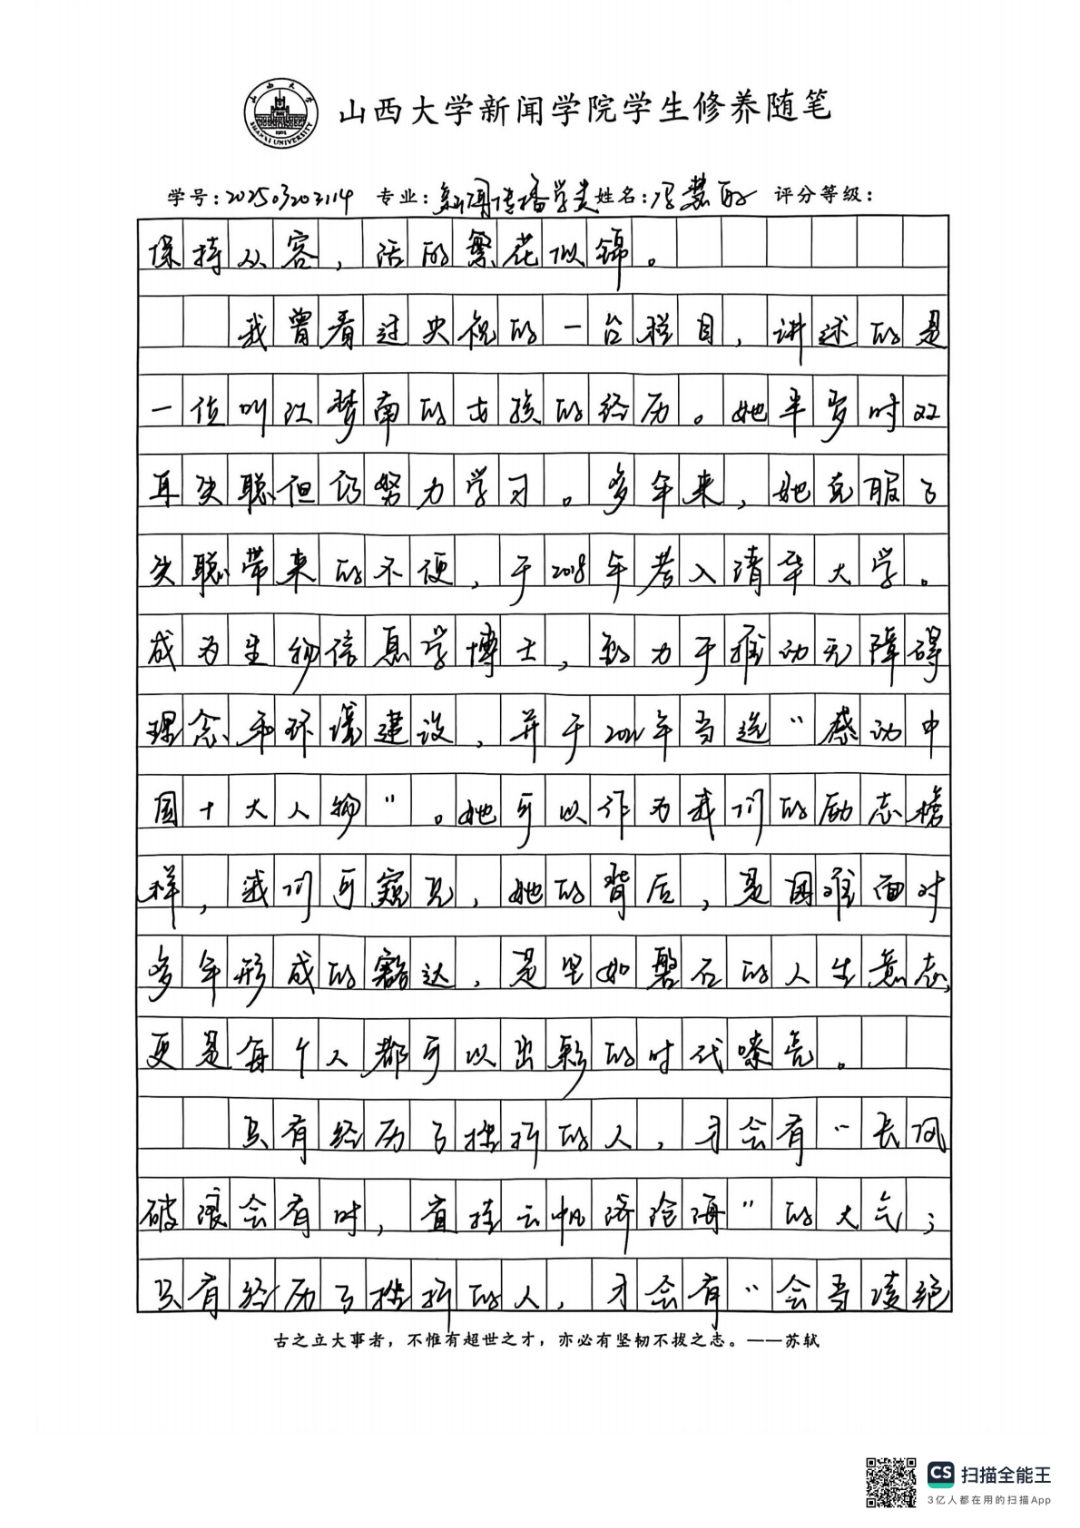 山西大学新闻学院学生修养随笔
学号:2025030203114 专业:新闻传播学类 姓名:冯慧 评分等级:
保持从容，活的繁花似锦。
我曾看过央视的一台栏目，讲述的是
一位叫江梦南的女孩的经历。她半岁时双
耳失聪但仍努力学习。多年来，她克服了
失聪带来的不便，于2018年考入清华大学。
成为生物信息学博士，致力于推动无障碍
理念和环境建设，并于2021年当选“感动中
国十大人物”。她可以作为我们的励志榜
样，我们可窥见，她的背后，是困难面对
多年形成的豁达，是坚如磐石的人生意志，
更是每个人都可以出彩的时代嘹亮。
只有经历了挫折的人，才会有“长风
破浪会有时，直挂云帆济沧海”的大气；
只有经历了挫折的人，才会有“会当凌绝
古之立大事者，不惟有超世之才，亦必有坚韧不拔之志。——苏轼
CS 扫描全能王
3亿人都在用的扫描App